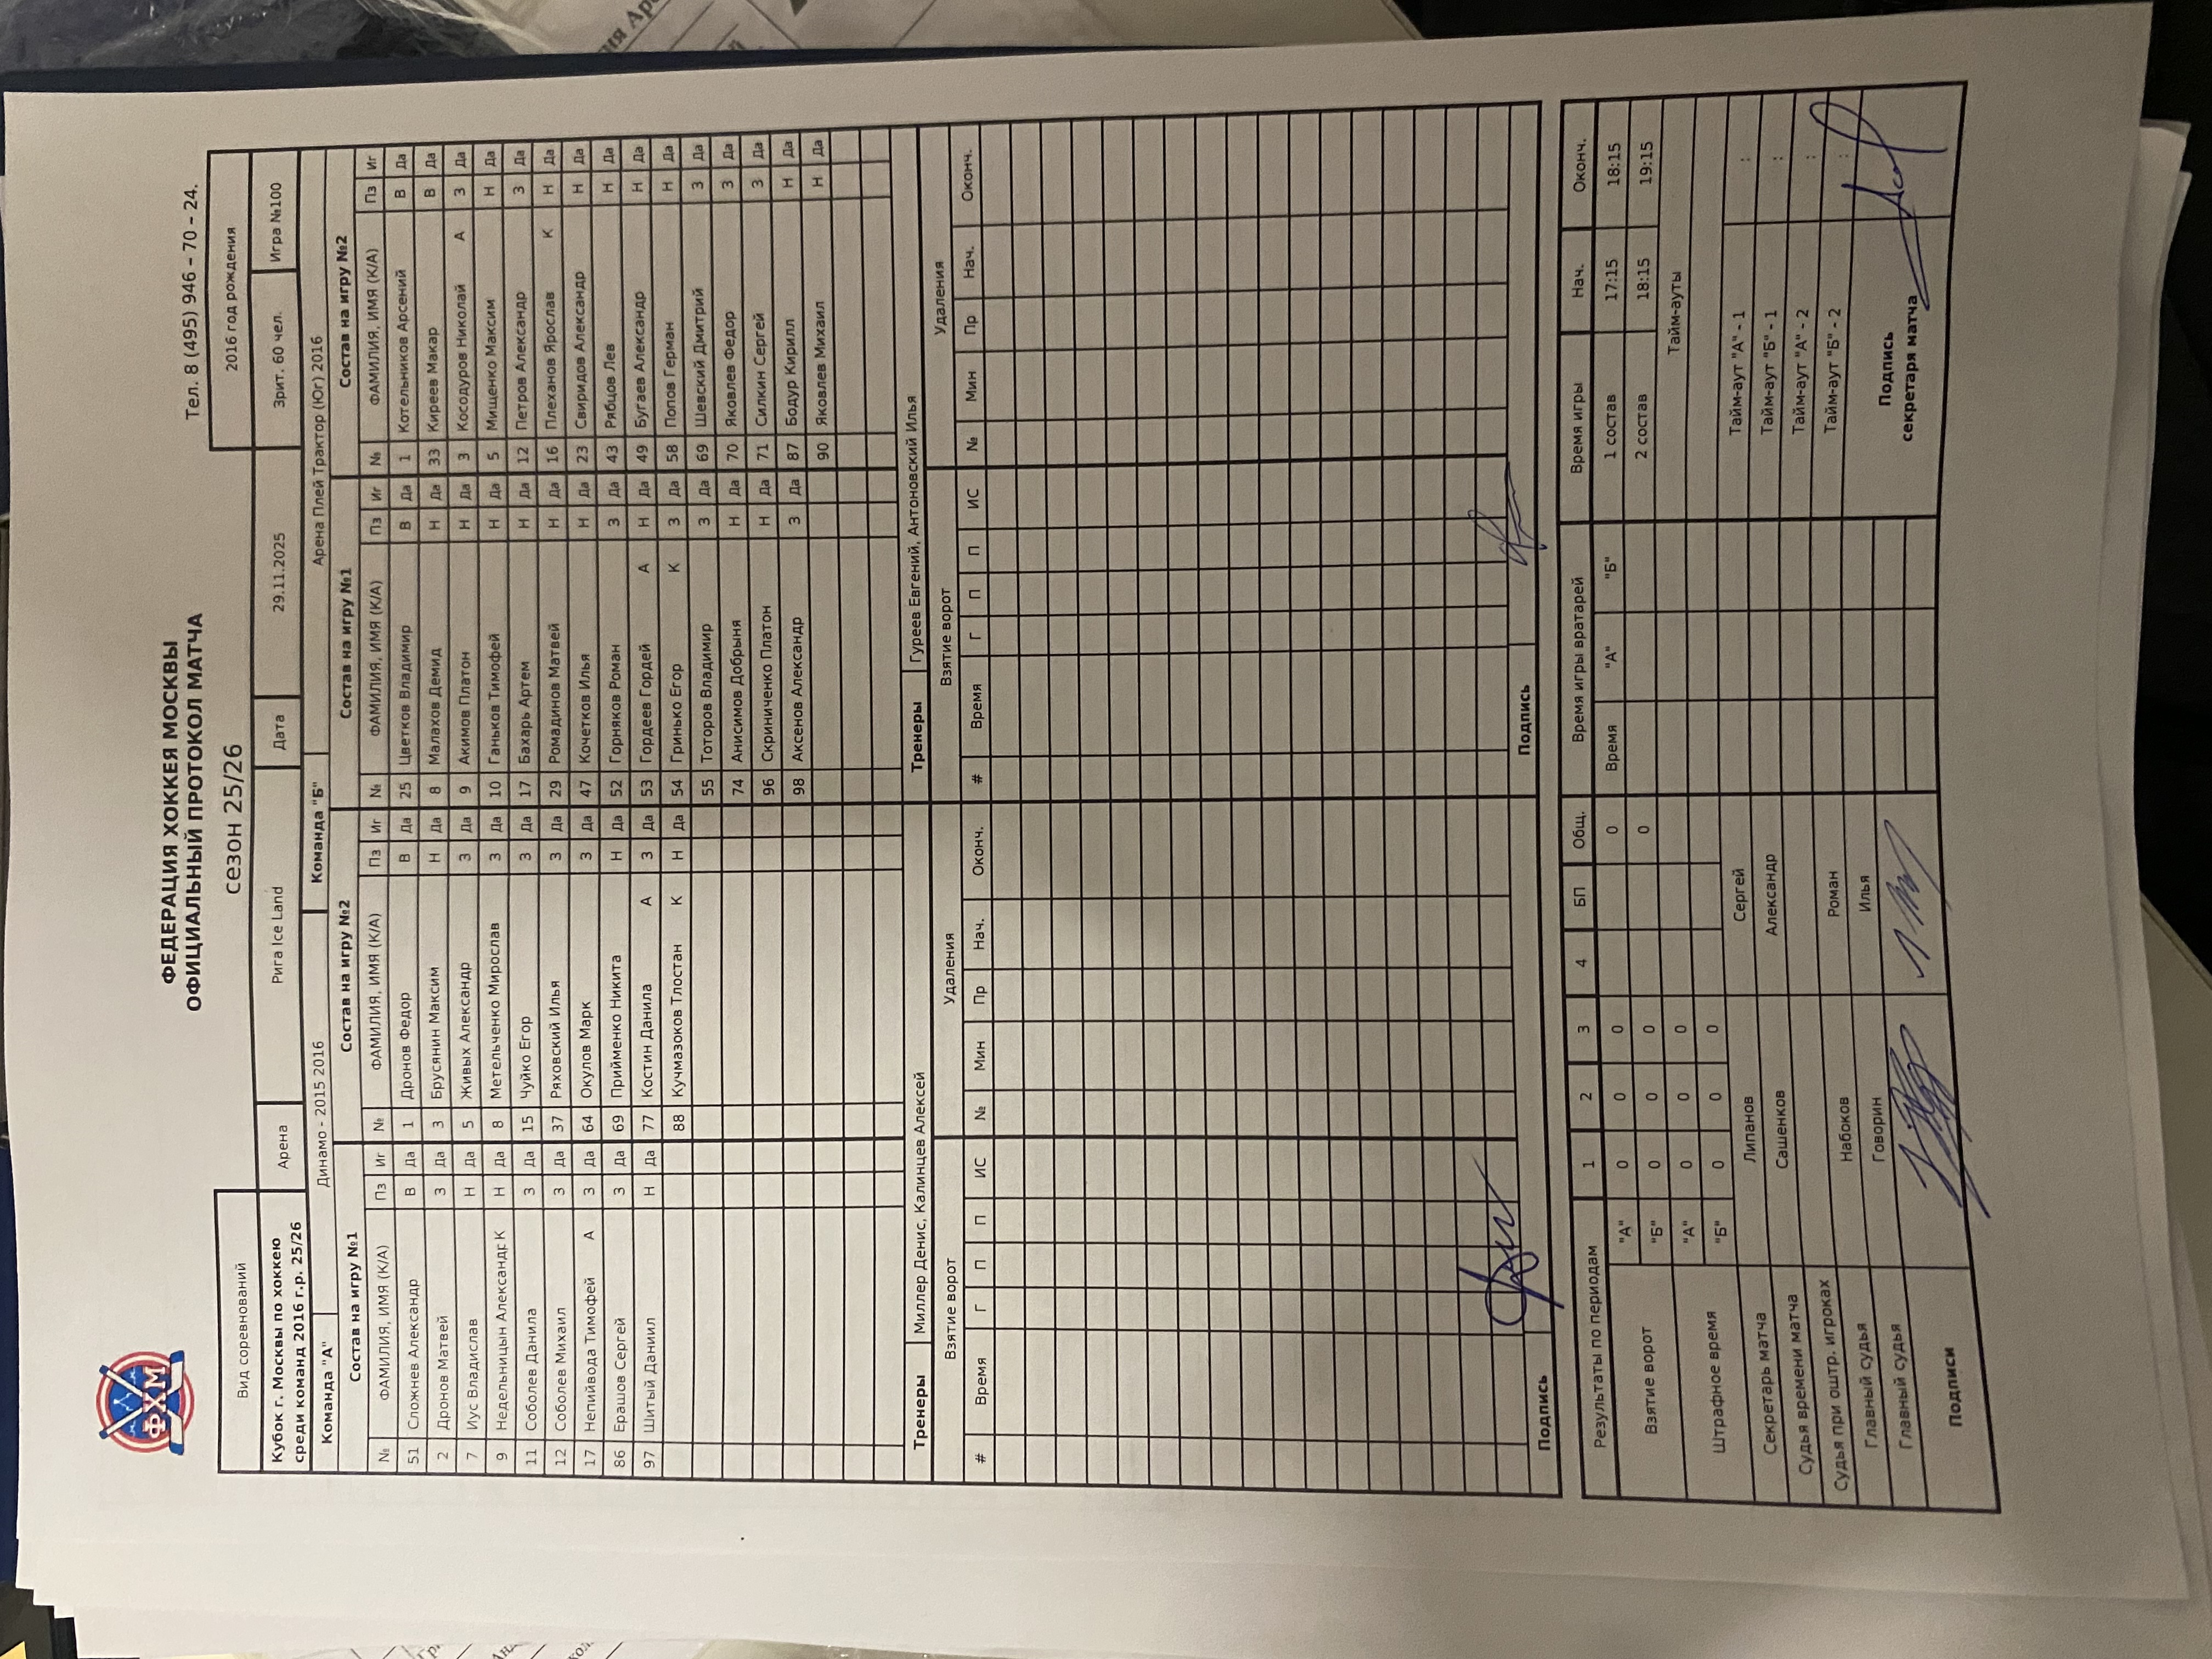 ФХМ
ФЕДЕРАЦИЯ ХОККЕЯ МОСКВЫ
ОФИЦИАЛЬНЫЙ ПРОТОКОЛ МАТЧА
Тел. 8 (495) 946 – 70 – 24.
сезон 25/26
Вид соревнований 2016 год рождения
Кубок г. Москвы по хоккею среди команд 2016 г.р. 25/26 Арена Рига Ice Land Дата 29.11.2025 Зрит. 60 чел. Игра №100
Команда "А" Динамо - 2015 2016 Команда "Б" Арена Плей Трактор (Юг) 2016
Состав на игру №1 Состав на игру №2 Состав на игру №1 Состав на игру №2
№ ФАМИЛИЯ, ИМЯ (К/А) Пз Иг № ФАМИЛИЯ, ИМЯ (К/А) Пз Иг № ФАМИЛИЯ, ИМЯ (К/А) Пз Иг № ФАМИЛИЯ, ИМЯ (К/А) Пз Иг
51 Сложнев Александр В Да 1 Дронов Федор В Да 25 Цветков Владимир В Да 1 Котельников Арсений В Да
2 Дронов Матвей З Да 3 Брусянин Максим Н Да 8 Малахов Демид Н Да 33 Киреев Макар В Да
7 Иус Владислав Н Да 5 Живых Александр З Да 9 Акимов Платон Н Да 3 Косодуров Николай А З Да
9 Недельницын Александр К Н Да 8 Метельченко Мирослав З Да 10 Ганьков Тимофей Н Да 5 Мищенко Максим Н Да
11 Соболев Данила З Да 15 Чуйко Егор З Да 17 Бахарь Артем Н Да 12 Петров Александр З Да
12 Соболев Михаил З Да 37 Ряховский Илья З Да 29 Ромадинов Матвей Н Да 16 Плеханов Ярослав К Н Да
17 Непийвода Тимофей А З Да 64 Окулов Марк З Да 47 Кочетков Илья Н Да 23 Свиридов Александр Н Да
86 Ерашов Сергей З Да 69 Прийменко Никита Н Да 52 Горняков Роман З Да 43 Рябцов Лев Н Да
97 Шитый Даниил Н Да 77 Костин Данила А З Да 53 Гордеев Гордей А Н Да 49 Бугаев Александр Н Да
88 Кучмазоков Тлостан К Н Да 54 Гринько Егор К З Да 58 Попов Герман Н Да
55 Тоторов Владимир З Да 69 Шевский Дмитрий З Да
74 Анисимов Добрыня Н Да 70 Яковлев Федор З Да
96 Скриниченко Платон Н Да 71 Силкин Сергей З Да
98 Аксенов Александр З Да 87 Бодур Кирилл Н Да
90 Яковлев Михаил Н Да
Тренеры Миллер Денис, Калинцев Алексей Тренеры Гуреев Евгений, Антоновский Илья
Взятие ворот Удаления Взятие ворот Удаления
# Время Г П П ИС № Мин Пр Нач. Оконч. # Время Г П П ИС № Мин Пр Нач. Оконч.
Подпись Подпись
Результаты по периодам 1 2 3 4 БП Общ. Время игры вратарей Время игры Нач. Оконч.
Взятие ворот "А" 0 0 0 0 Время "А" "Б" 1 состав 17:15 18:15
"Б" 0 0 0 0 2 состав 18:15 19:15
Штрафное время "А" 0 0 0 Тайм-ауты
"Б" 0 0 0
Секретарь матча Липанов Сергей Тайм-аут "А" - 1 :
Судья времени матча Сашенков Александр Тайм-аут "Б" - 1 :
Судья при оштр. игроках Тайм-аут "А" - 2 :
Главный судья Набоков Роман Тайм-аут "Б" - 2 :
Главный судья Говорин Илья
Подписи Подпись секретаря матча